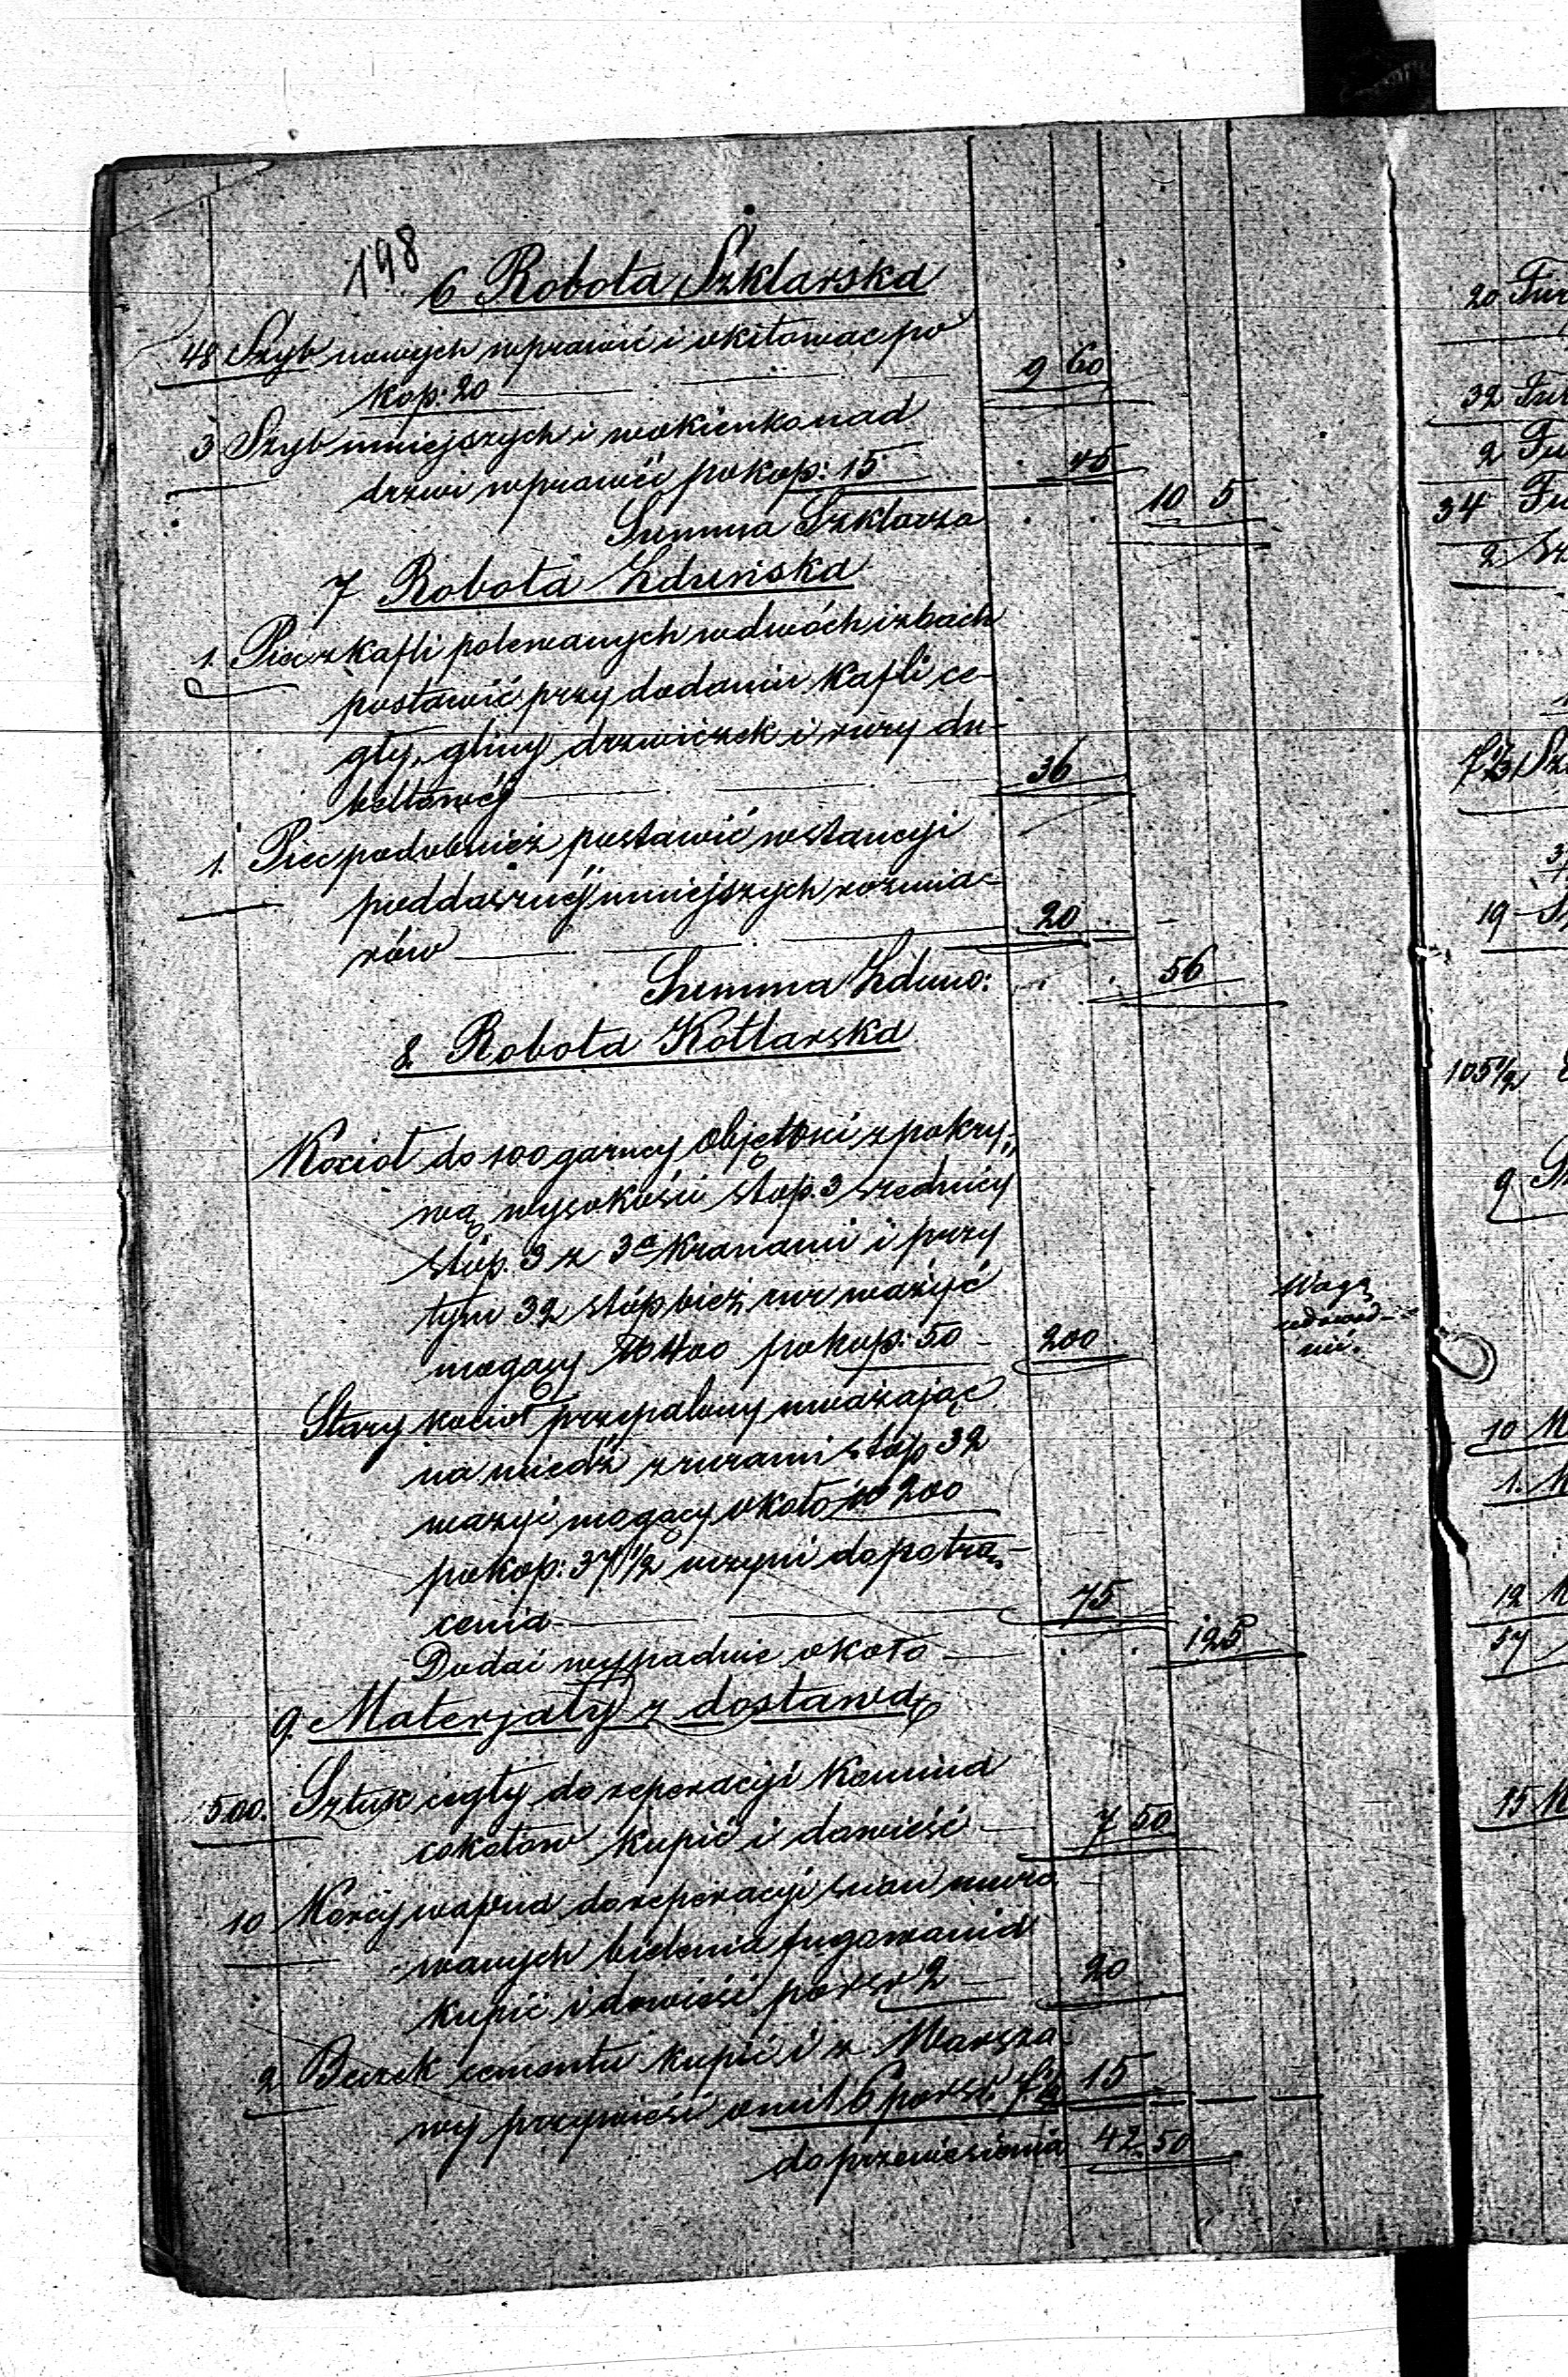 198
6 Robota Szklarska
48 Szyb nowych wprawić i okitowac po
kop: 20 9 60
3 Szyb mniejszych i w okienko nad
drzwi wprawić po kop: 15 . 45
Summa Szklarza . . 10 5
7 Robota Zduńska
1. Piec z kafli polewanych w dwóch izbach
postawić przy dodaniu kafli ce-
gły, gliny drzwiczek i rury du-
beltowéj 36
1. Piec podobnież postawić w stancyi
poddasznéj mniejszych rozmia-
rów 20
Summa Zduno: . . 56
8 Robota Kotlarska
Kocioł do 100 garncy objętości z pokry-
wą wysokości stóp. 3 srednicy
stóp. 3 z 3a kranami i przy
tym 32 stóp bież. rur ważyć
mogący 400 po kop: 50 200
Wagę
udowod-
nić.
Stary kocioł przepalony uważając
na miedź z rurami stóp 32
ważyć mogący około 200
po kop: 37 1/2 uczyni do potrą-
cenia 75
Dodać wypadnie około . . 125
9. Materjały z dostawą
500. Sztuk cegły do reperacyi komina
cokołów kupić i dowieść 7 50
10 Korcy wapna do reperacyi scian muro
wanych bielenia fugowania
kupić i dowieść po rsr 2 20
2 Beczek cementu kupić i z Warsza
wy przywieść o mil 6 po rsr. 7 1/2 15
do przeniesienia 42 50
20
32
2
34
2
19
105 1/2
9
10
1.
12
57
15